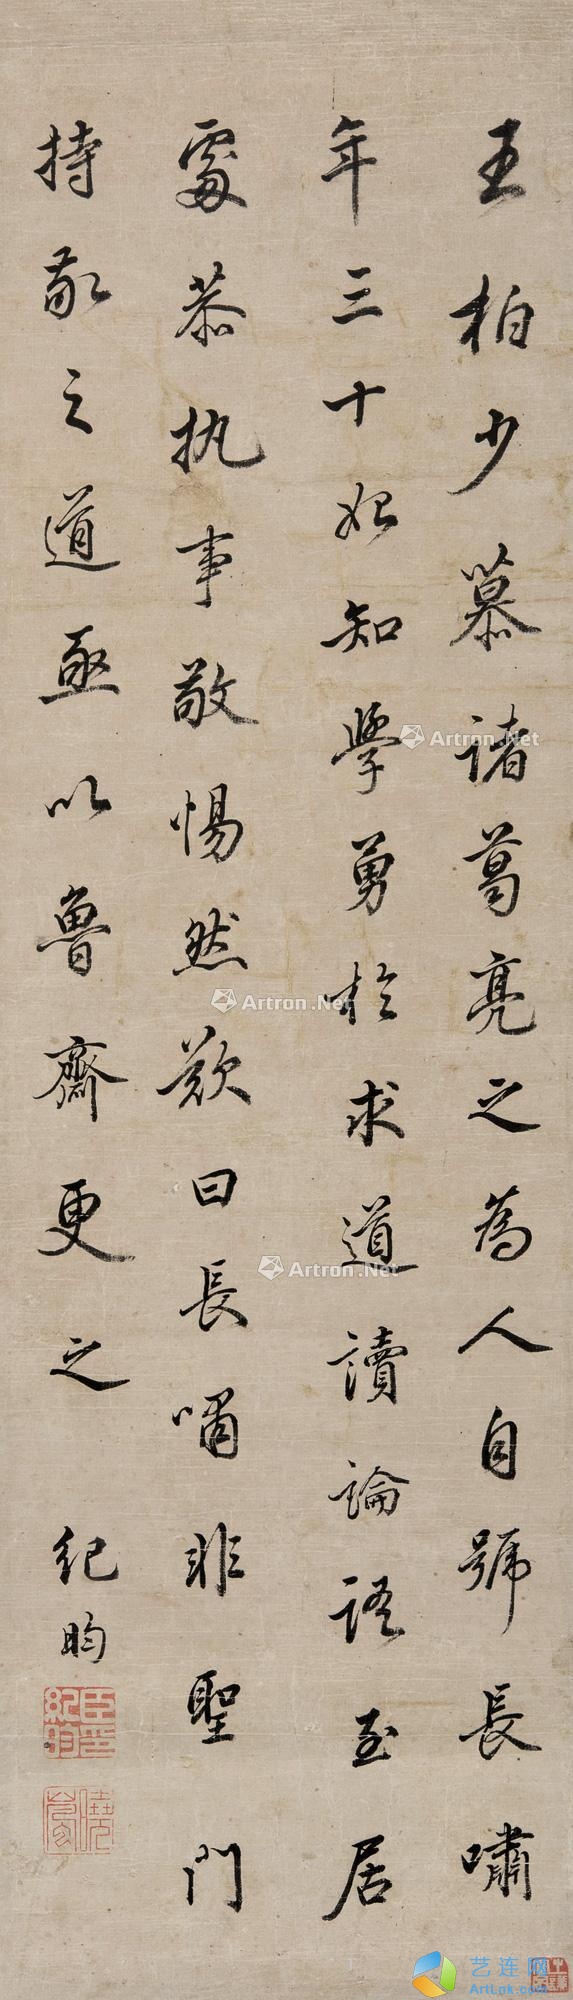 王柏少慕諸葛亮之為人自號長嘯
年三十始知學勇於求道讀論語至居
處恭執事敬惕然歎曰長嘯非聖門
持敬之道亟以魯齋更之
紀昀
臣紀昀印
曉嵐
Artron.Net
Artron.Net
Artron.Net
艺连网
ArtLok.com